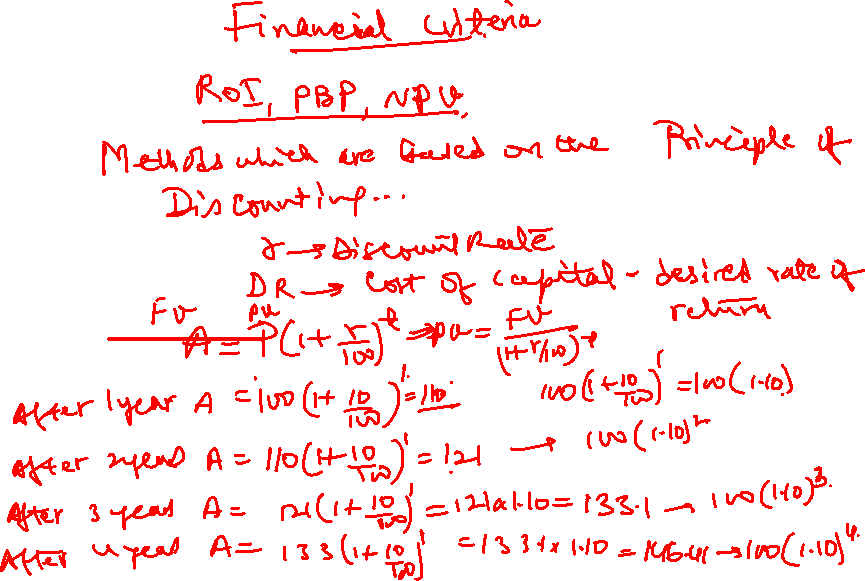 Financial Criteria
ROI, PBP, NPV,
Methods which are based on the Principle of
Discounting...
r → Discount Rate
DR → Cost of capital - desired rate of return
FV PV
A = P(1 + r/100)^t ⇒ PV = FV/(1+r/100)^t
After 1 year A = 100(1 + 10/100)^1 = 110. 100(1+10/100)^1 = 100(1.10)
After 2 years A = 110(1+10/100)^1 = 121 → 100(1.10)^2
After 3 years A = 121(1+10/100)^1 = 121x1.10 = 133.1 → 100(1.10)^3.
After 4 years A = 133(1+10/100)^1 = 133.1x1.10 = 146.41 → 100(1.10)^4.